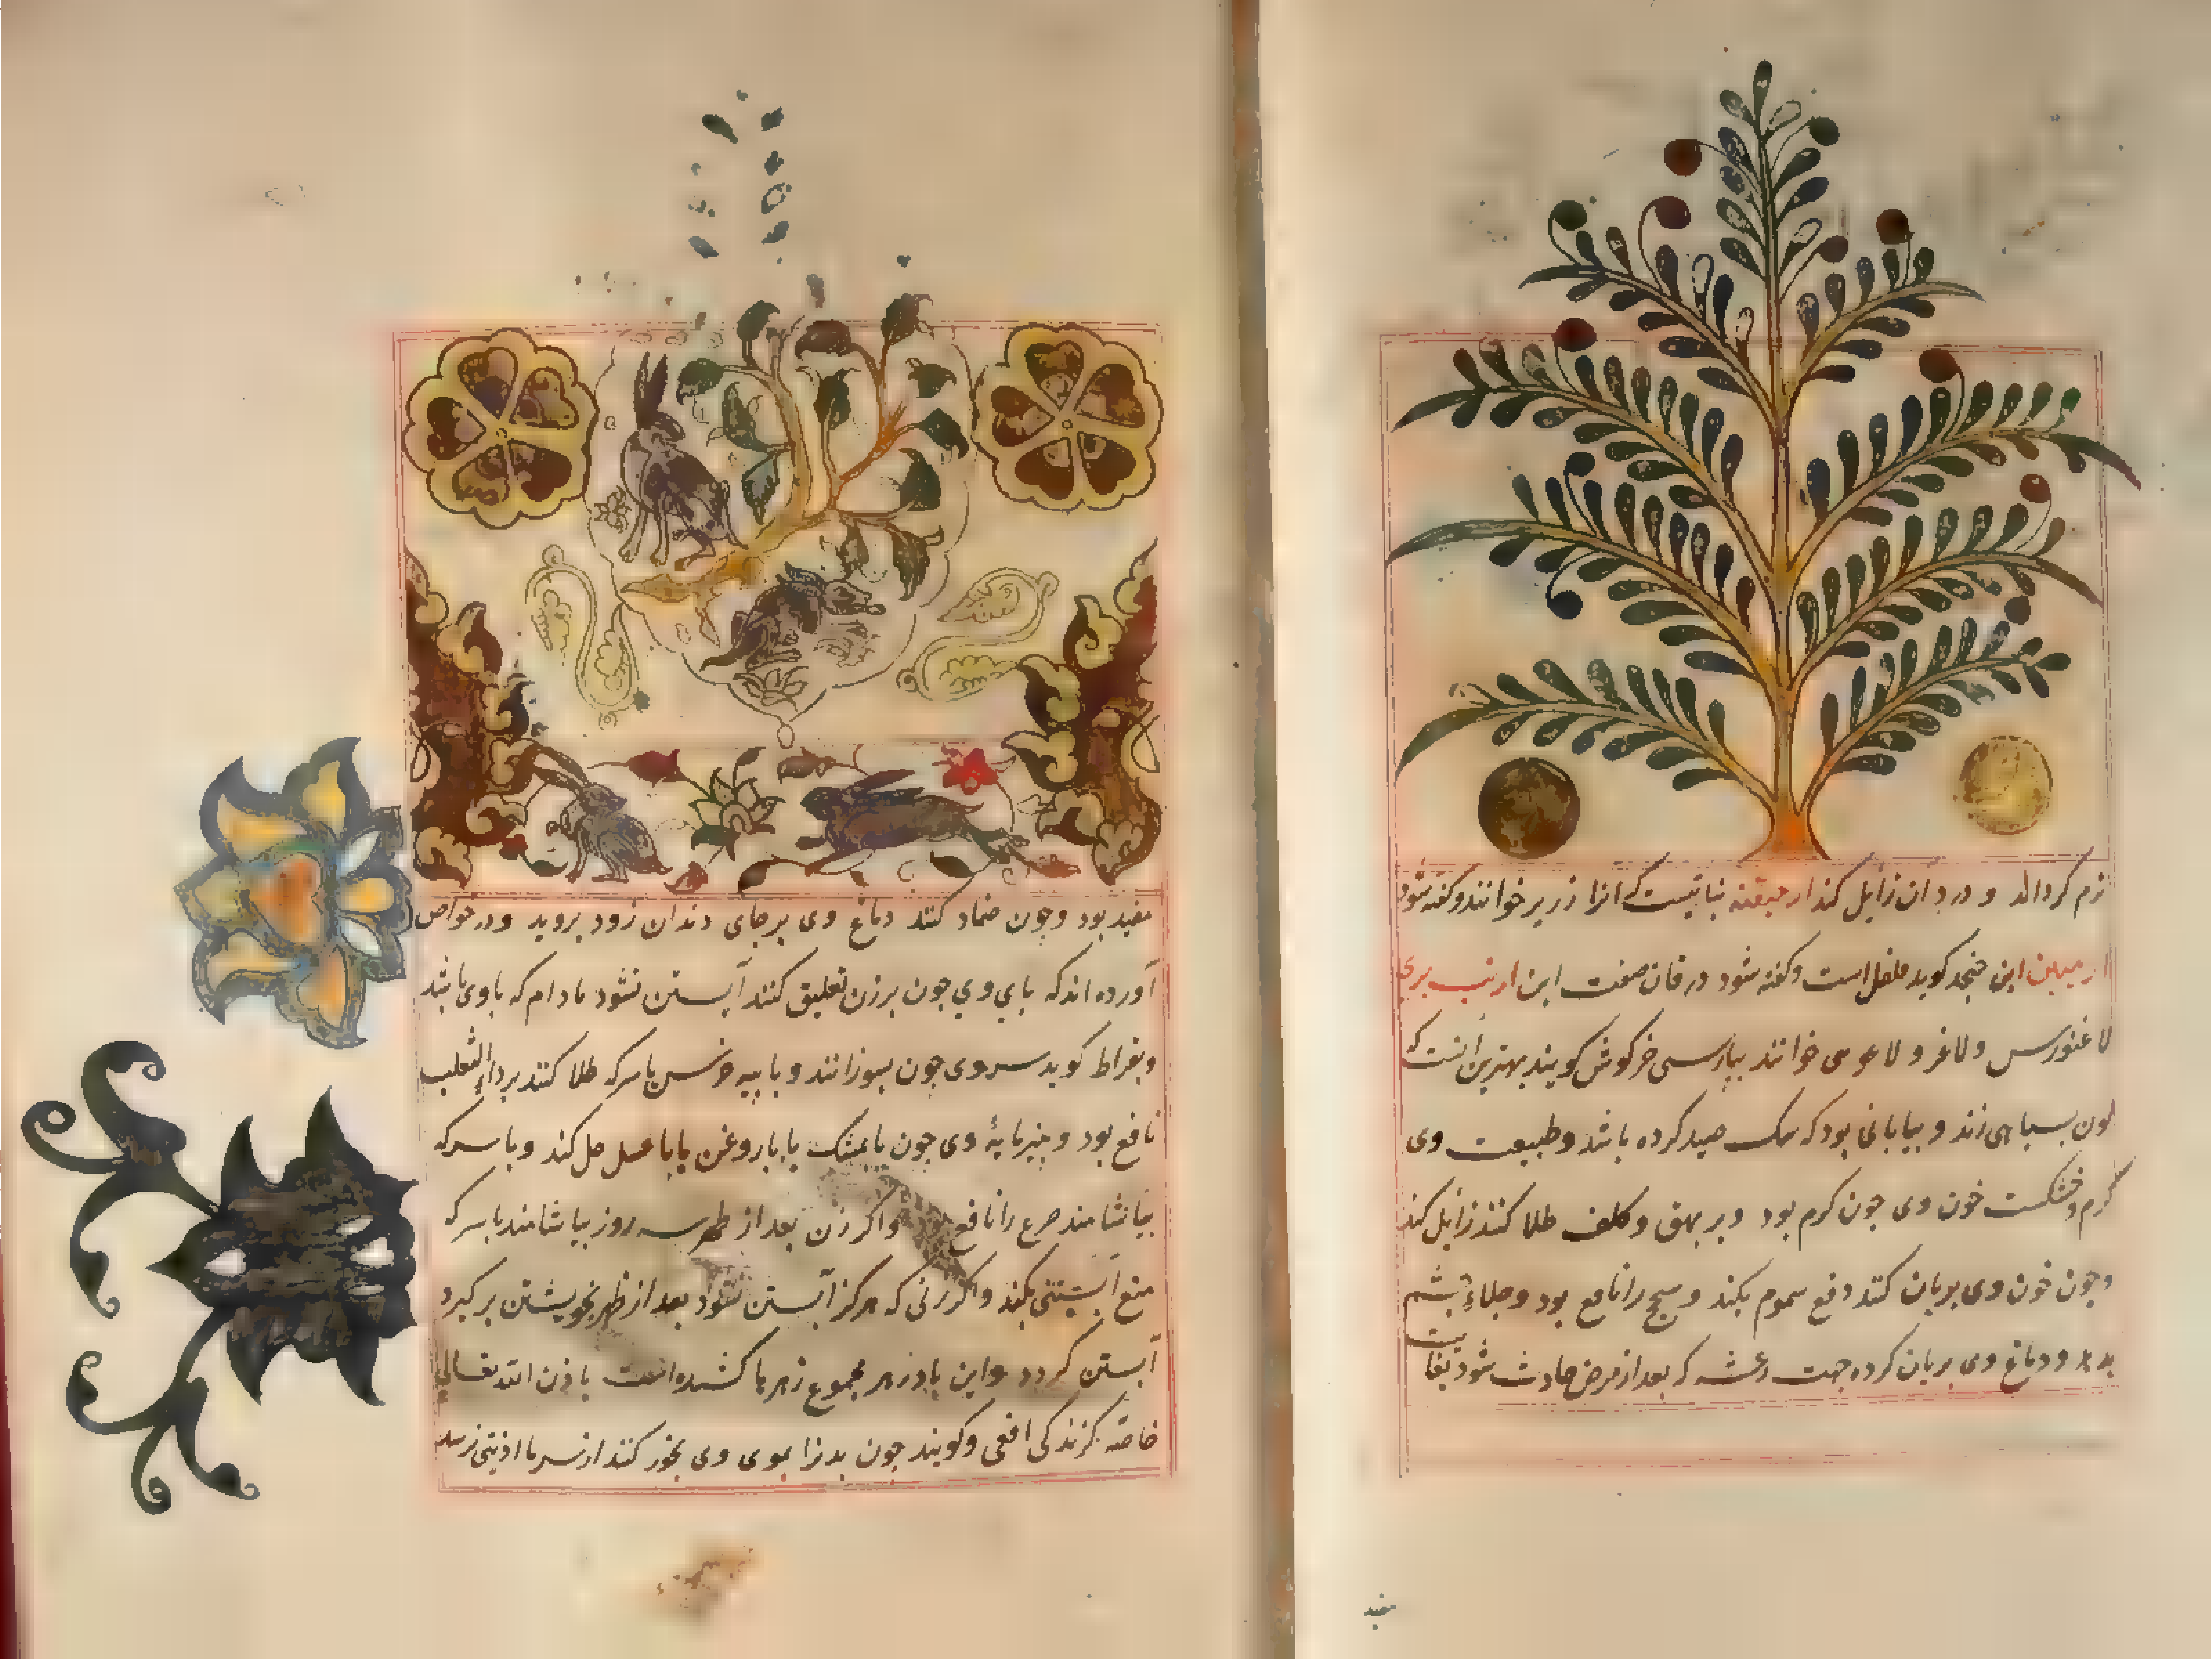 نرم کرداند و درد آن زایل کند ارجیقنه نباتیست که انرا زریر خوانند و کفته شود
ارمیلن ابن جنجد کوید فلفل است و کفته شود در فان صفت ابن ارنب بری
لاغنورس و لاغر و لاعوسی خوانند بپارسی خرکوش کویند بهترین آنست که
لون بسیاهی زند و بیابانی بود که سک صید کرده باشد و طبیعت وی
کرم و خشکست خون وی جون کرم بود و بر بهق و کلف طلا کنند زایل کند
وجون خون وی بریان کنند دفع سموم بکند و سحج را نافع بود و جلاء چشم
بدهد و دماغ وی بریان کرده جهت رعشه که بعد از مرض حادث شود بغایت
مفید
مفید بود وجون ضماد کنند دماغ وی بر جای دندان زود بروید و در خواص
آورده اند که پای وی جون بر زن تعلیق کنند آبستن نشود مادام که با وی باشد
وبقراط کوید سر وی جون بسوزانند و با پیه خرس یا سرکه طلا کنند بر داء الثعلب
نافع بود و پنیر مایهٔ وی جون با مشک یا با روغن یا با عسل حل کند و با سرکه
بیاشامند صرع را نافع بود و اکر زن بعد از طهر سه روز بیاشامند با سرکه
منع آبستنی بکند و اکر زنی که هرکز آبستن نشود بعد از طهر بخویشتن برکیرد
آبستن کردد واین پادزهر مجموع زهرها کشنده است باذن الله تعالی
خاصه کزندکی افعی و کویند جون بدن را بموی وی بخور کنند از سرما اذیتی نرسد